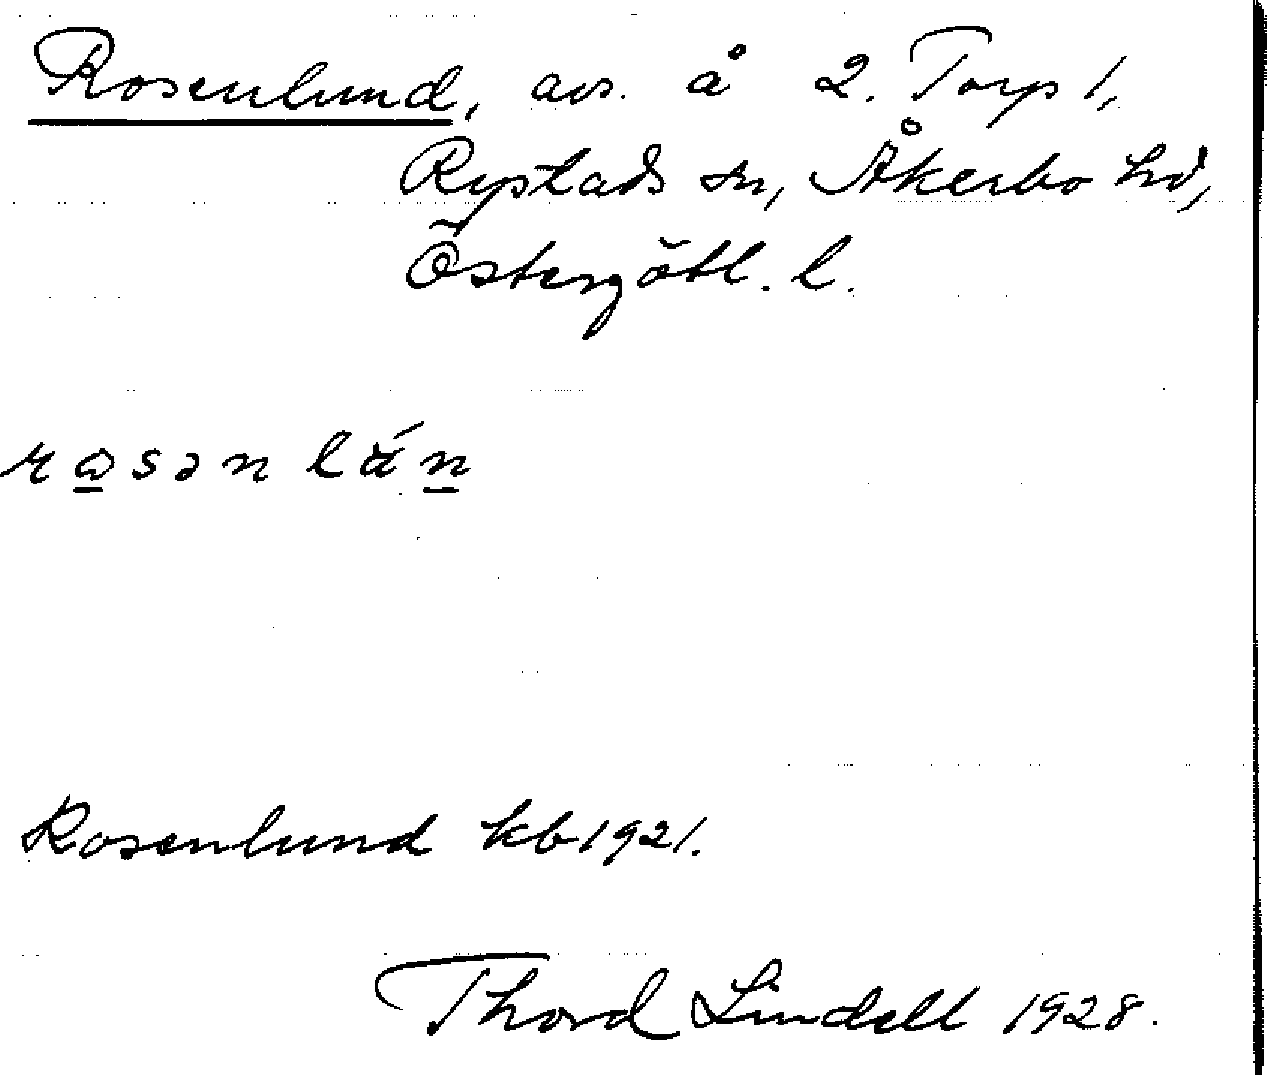 Rosenlund, avs. å 2. Torp 1,
Rystads sn, Åkerbo hd,
Östergötl. l.
Rosenlund kb 1921.
Thord Lindell 1928.